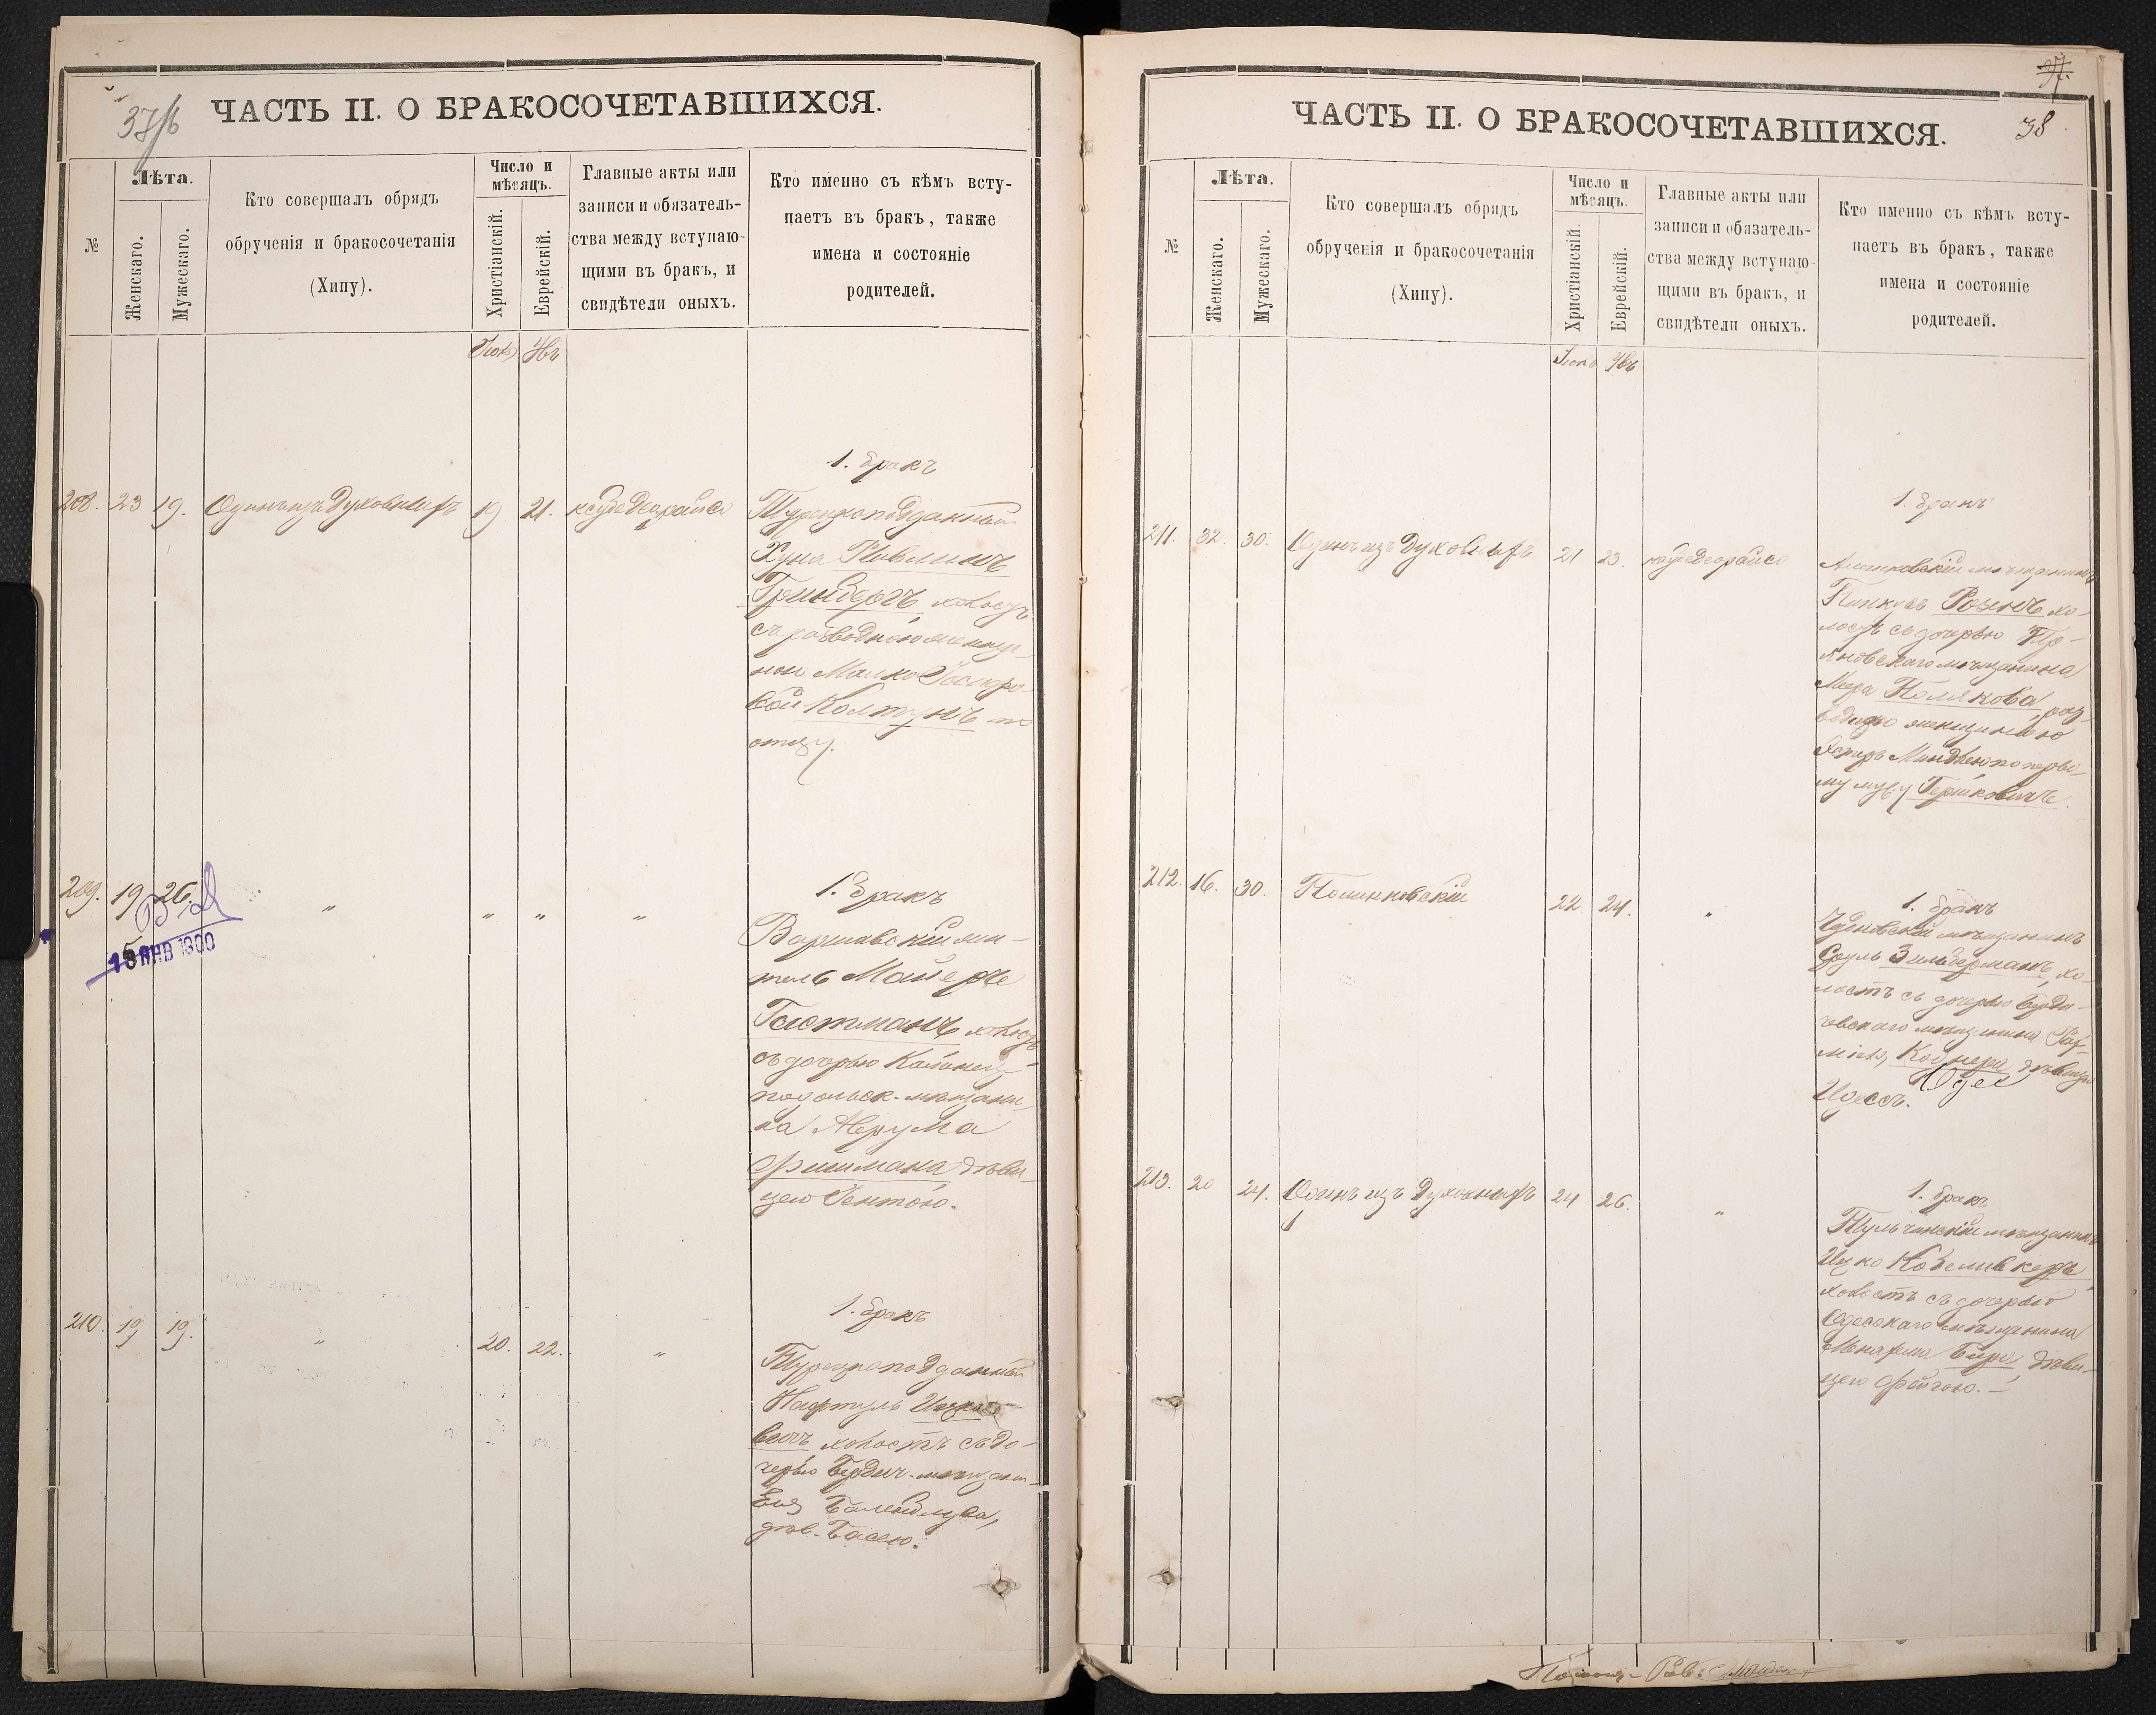 37/б
ЧАСТЬ II. О БРАКОСОЧЕТАВШИХСЯ.
№
Лѣта.
Женскаго.
Мужескаго.
Кто совершалъ обрядъ
обрученія и бракосочетанія
(Хипу).
Число и
мѣсяцъ.
Христіанскій.
Еврейскій.
Главные акты или
записи и обязатель-
ства между вступаю-
щими въ бракъ, и
свидѣтели оныхъ.
Кто именно съ кѣмъ всту-
паетъ въ бракъ, также
имена и состояніе
родителей.
1. бракъ
208. 23 19. Одинъ изъ Духовныхъ 19 21.
Турецкоподданный
Хуна
Гринбергъ холостъ
съ разводною женщи-
ною Малко
Колтунъ по
отцу.
209. 19 26. " " " "
15 ЯНВ 1900
1. Бракъ
Варшавскій жи-
тель Майеръ
Гистманъ холостъ
съ дочерью Каменец
подольск. мѣщани-
на Аврума
Фишмана дѣви-
цею Гентою.
210. 19 19. " 20. 22. "
1. бракъ
Турецкоподданный
Нафтуль Ицко-
вичъ холостъ съ до-
черью Бердич. мѣщан.
дѣв. Басею.
37.
38
ЧАСТЬ II. О БРАКОСОЧЕТАВШИХСЯ.
№
Лѣта.
Женскаго.
Мужескаго.
Кто совершалъ обрядъ
обрученія и бракосочетанія
(Хипу).
Число и
мѣсяцъ.
Христіанскій.
Еврейскій.
Главные акты или
записи и обязатель-
ства между вступаю-
щими въ бракъ, и
свидѣтели оныхъ.
Кто именно съ кѣмъ всту-
паетъ въ бракъ, также
имена и состояніе
родителей.
1. бракъ
211. 32. 30. Одинъ изъ Духовныхъ 21 23.
мѣщанинъ
Пинкусъ Розенъ хо-
лостъ съ дочерью
мѣщанина
Меера Полякова, раз-
водною женщиною
по перво-
му мужу Гершковичъ.
212. 16. 30. 22 24. "
1. бракъ
Чудновскій мѣщанинъ
Сруль Зильберманъ, хо-
лостъ съ дочерью Берди-
човскаго мѣщанина
дѣвицею
Одес
213. 20 24. Одинъ изъ Духовныхъ 24 26. "
1. бракъ
Тульчинскій мѣщанинъ
Ицко Кобеливкеръ,
холостъ съ дочерью
Одесскаго мѣщанина
Бира, дѣви-
цею Фейгою.